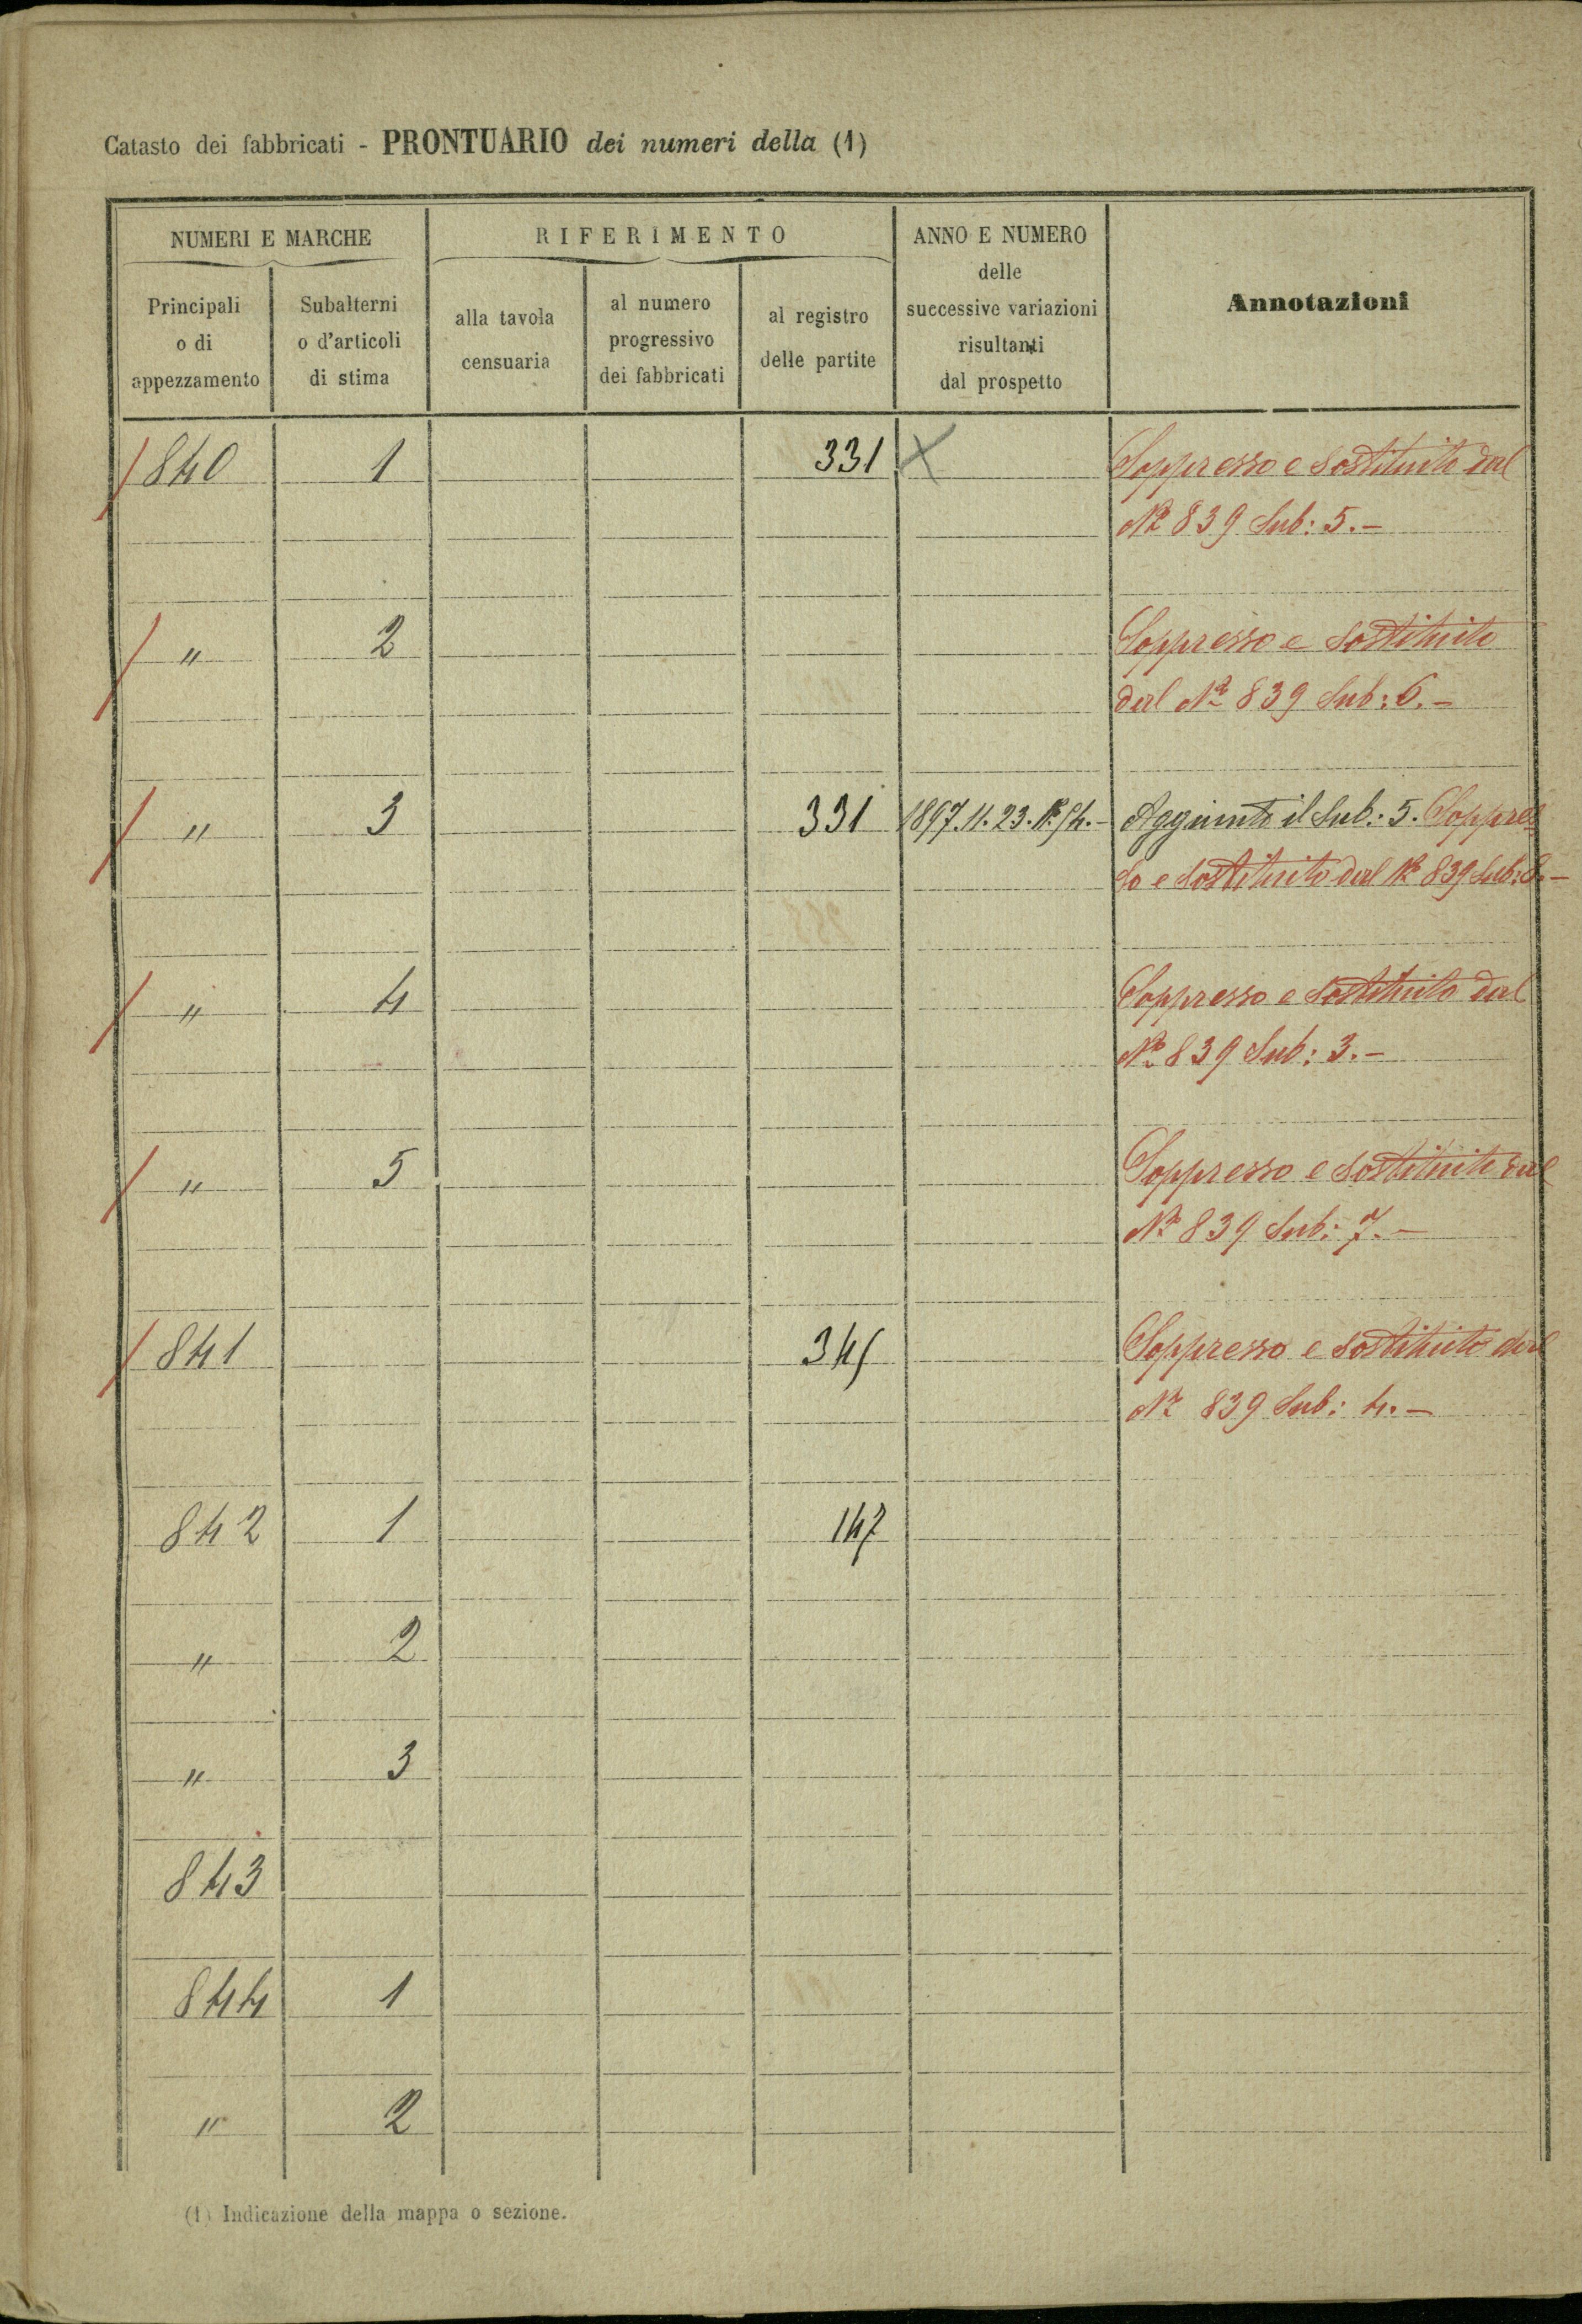 Catasto dei fabbricati - PRONTUARIO dei numeri della (1)
NUMERI E MARCHE
RIFERIMENTO
ANNO E NUMERO
delle
successive variazioni
risultanti
dal prospetto
Annotazioni
Principali
o di
appezzamento
Subalterni
o d'articoli
di stima
alla tavola
censuaria
al numero
progressivo
dei fabbricati
al registro
delle partite
840 1 331 Soppresso e sostituito dal
N.º 839 Sub: 5.-
" 2 Soppresso e sostituito
dal N.º 839 Sub: 6.-
" 3 331 1897.11.23. Aggiunto il Sub: 5. Soppres
so e sostituito dal N.º 839 Sub: 8.-
" 4 Soppresso e sostituito dal
N.º 839 Sub: 3.-
" 5 Soppresso e sostituito dal
N.º 839 Sub: 7.-
841 Soppresso e sostituito dal
N.º 839 Sub: 4.-
842 1 147
" 2
" 3
843
844 1
" 2
(1) Indicazione della mappa o sezione.